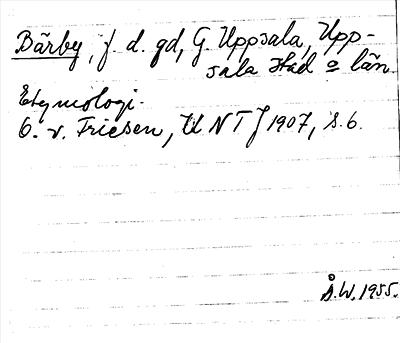 Bärby, f. d. gd, G. Uppsala, Upp-
sala Had o län.
Etymologi.
O. v. Friesen, UNTJ 1907, s. 6.
Å.W. 1955.